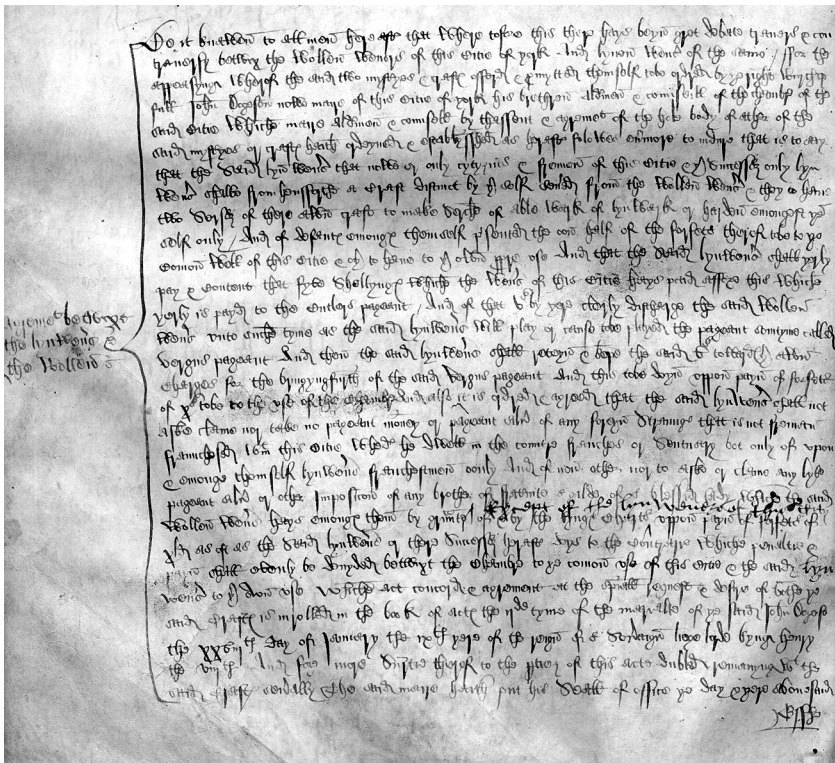 Be it knawen to all men here after that where tofore this ther hays beyn grot debate travers & con
traversy betwyx the Wollen wevers of this Citie of york And lynen wevers of the same / ffor the
appeasyng wherof the said two mysteres & craft offerd & themself tobe ordred by ye right wirship
full John Dogeson nowe maire of this Citie of york his brethren aldermen & counsell of the chambre of the
said Citie Whiche maire aldermen & counsell by thassent & agrement of the hole body of ather of the
said mysteres or craft haith ordeyned & establysshed as herafter folowes evermore to indure that is to say
that the said lyn wevers that nowe er only cytyzins & fremen of this Citie & successours only lyn
wevers shalbe from hensforthe a craft distinct by self from the Wollen wevers & they to have
two serchers of there awn craft to make serche of able wark of lynwark or harden emongest ye
self only / And of defautes emongs themself presented the one half of the forfets therof tobe to ye
common well of this Citie & other to have to yr own propre use And that the said lynwevers shall yerly
pay & content that fyve shyllyngs whiche the wevers of this Citie hays paid affore this whiche
yerly is payd to the Cutlers pageant / And of that by yere clerly discharge the said Wollen
wevers unto suche tyme as the said lynwevers will play or cause tobe played the pageant somtyme called
vergus pageant And then the said lynwevers shall reteyn & kepe the said vs toward yr awn
Charges for the bryngyngfurth of the said vergus pageant And this tobe doyn oppon payn of forfet
of tobe to the use of the Chamber And also it is ordred & agreed that the said lynwevers shall not
aske clame nor take no pageant money or pageant silver of any foreyn strainge that is not freman
fraunchesed wtin this Citie whedder he dwell in the contre fraunches or sentuary bot only of upon
& emongs themself lynwevers fraunchestmen oonly And of non other nor to aske or clame any lyke
pageant silver or other imposicon of any brother of & gilde of blessed lady whiche the said
Wollen wevers hays emongs them by graunte of the kyngs Charter Except of the lynwevers of this Citie oppon payn of forfets of
as oft as the said lynwevers or there successours herafter doys to the contrarie whiche penaltie &
payne shall evenly be devyded betwixt the Chambre to ye common use of this Citie & the said lyn
wevers to yr awn use Whiche act concorde & agrement at the speciall request & desire of bothe ye
said crafts is inrolled in the book of acts the ijde tyme of the mairalte of ye said John Dogeson
the xxviijth day of January the ixth yere of the reign of or soveraign liege lorde kyng henry
the viijth And for more suertie therof to the partes of this acte dubled remanyng wt the
said crafts severally the said maire haith put his seall of office ye day & yere abovesaid
agrement betwixt
the lynwevers &
the Wollen wevers